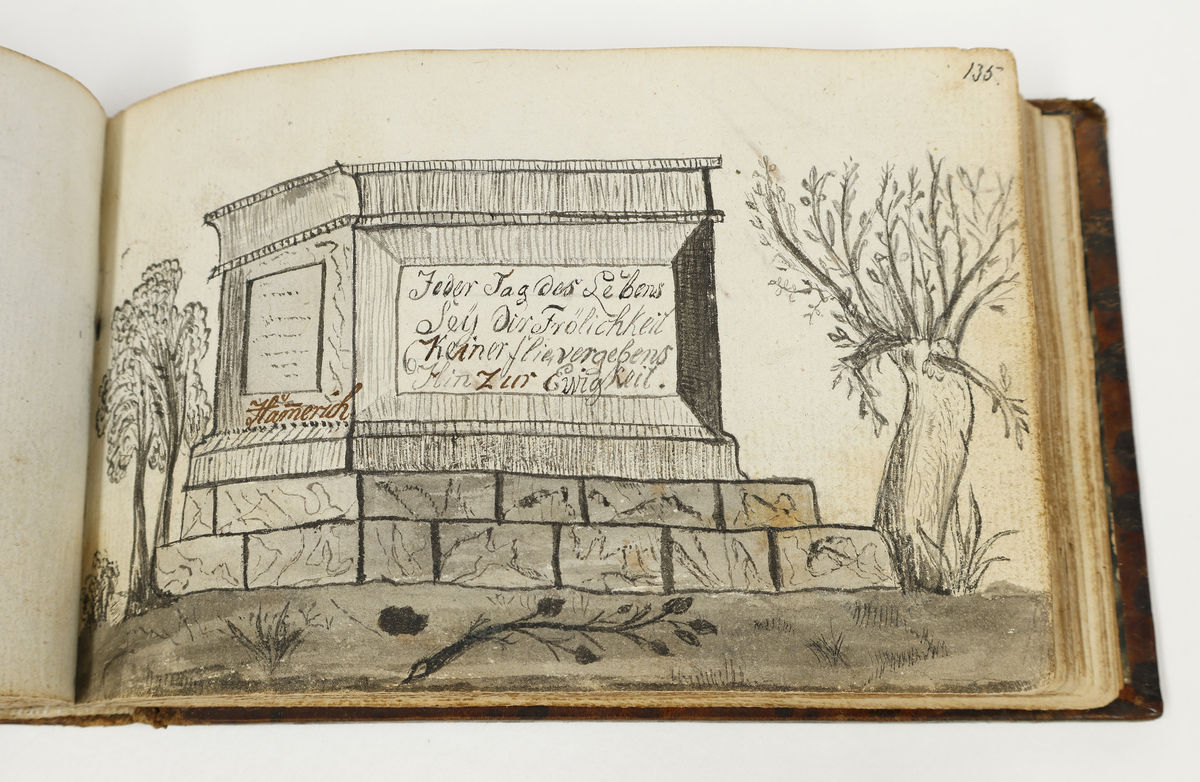 135.
Jeder Tag des Lebens
Seÿ dir Frölichkeit
Keiner flie vergebens
Hin zur Ewigkeit.
Hämerich